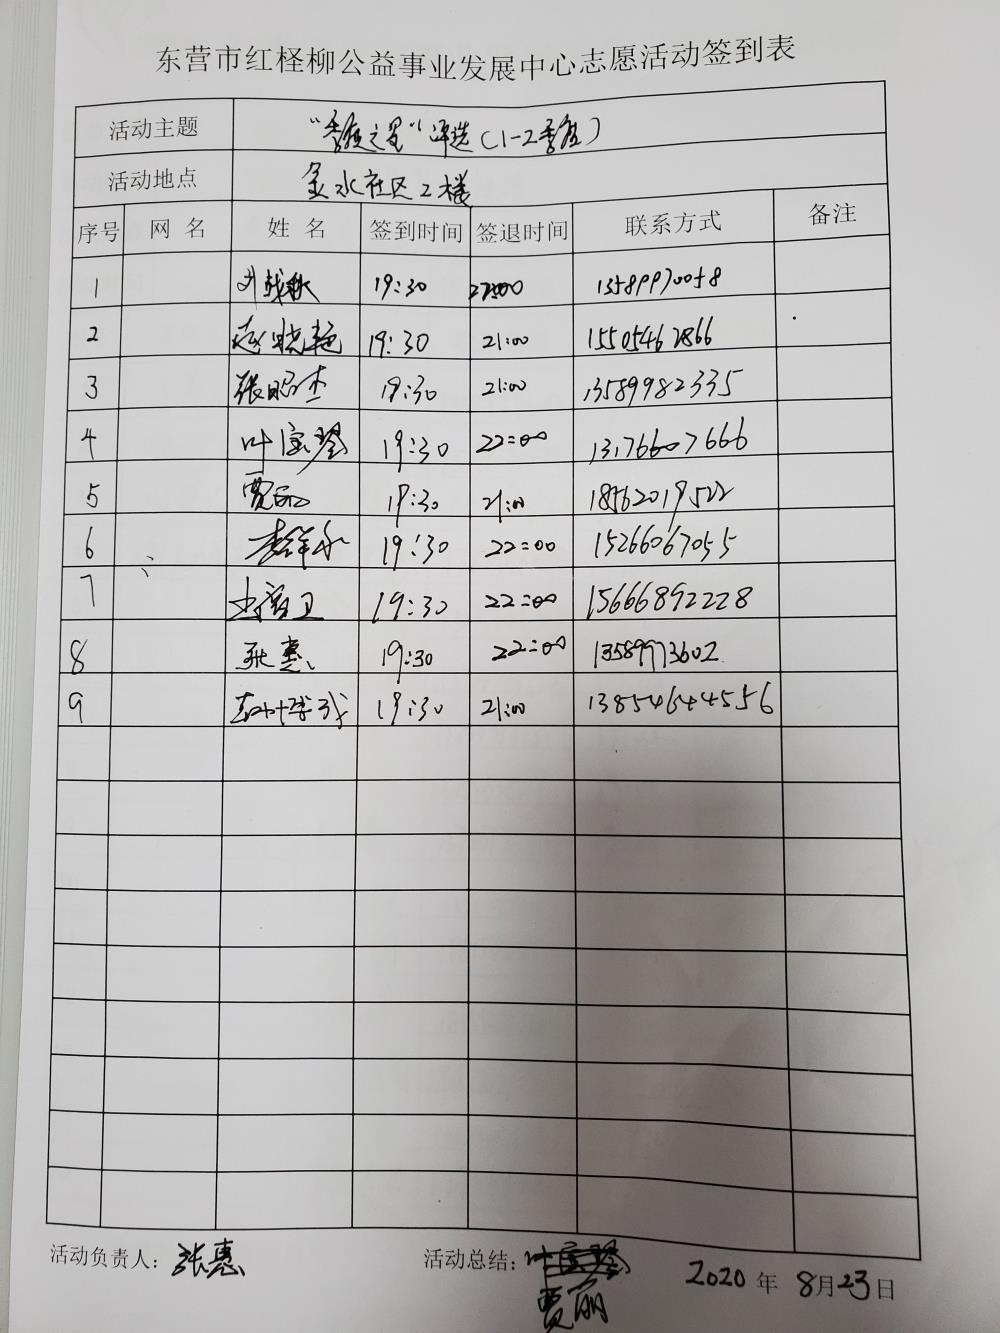 东营市红柽柳公益事业发展中心志愿活动签到表
活动主题 "季度之星"评选(1-2季度)
活动地点 金水社区2楼
序号 网名 姓名 签到时间 签退时间 联系方式 备注
1 刘战秋 19:30 22:00 13589970058
2 赵晓艳 19:30 21:00 15505462866
3 张昭杰 19:30 21:00 13589982335
4 叶宝琴 19:30 22:00 13176607666
5 贾丽 19:30 21:00 18562019522
6 李祥永 19:30 22:00 15266067055
7 卫 19:30 22:00 15666892228
8 张惠 19:30 22:00 13589973602
9 19:30 21:00 13854644556
活动负责人: 张惠 活动总结: 叶宝琴
贾丽
2020年 8月23日